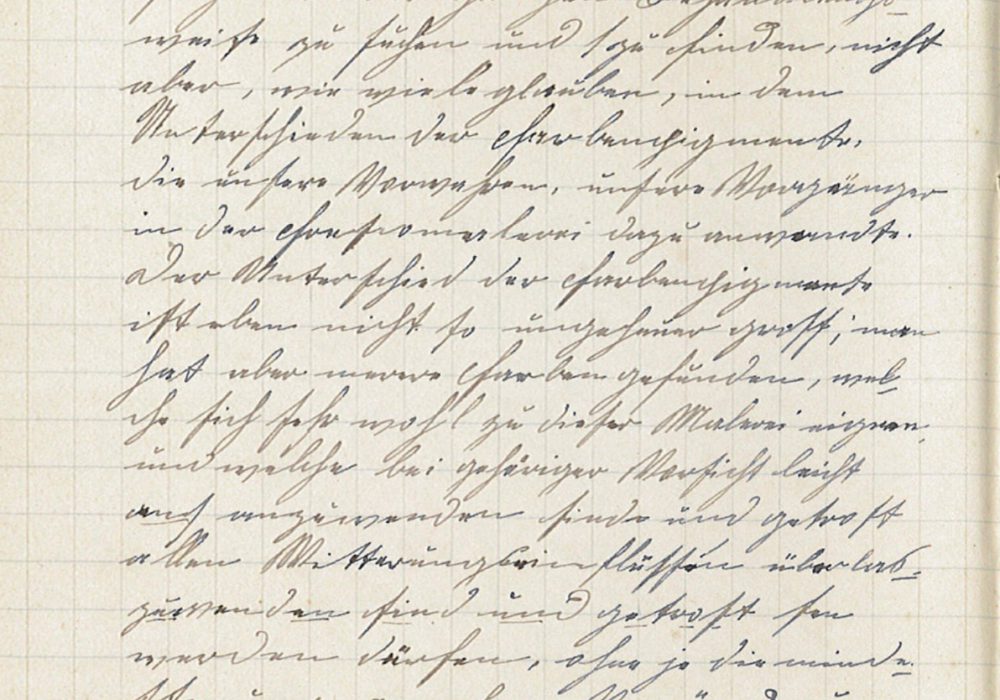 weise zu suchen und zu finden, nicht
aber, wie viele glauben, in dem
Unterschieden der Farbenpigmente,
die unsere Vorfahren, unsere Vorgänger
in der Freskomalerei dazu anwandte.
Der Unterschied der Farbenpigmente
ist eben nicht so ungeheuer gross, man
hat aber merere Farben gefunden, wel-
che sich sehr wohl zu dieser Malerei eignen,
und welche bei gehöriger Vorsicht leicht
auch anzuwenden sind und getrost
allen Witterungseinflüssen überlas-
zuwenden sind und getrost sen
werden dürfen, ohne je die minde-